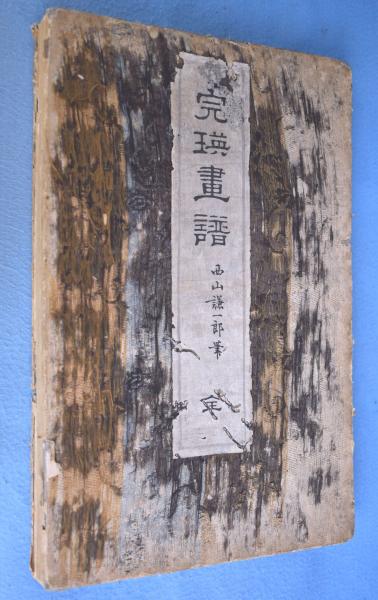 完瑛畫譜
西山謙一郎筆